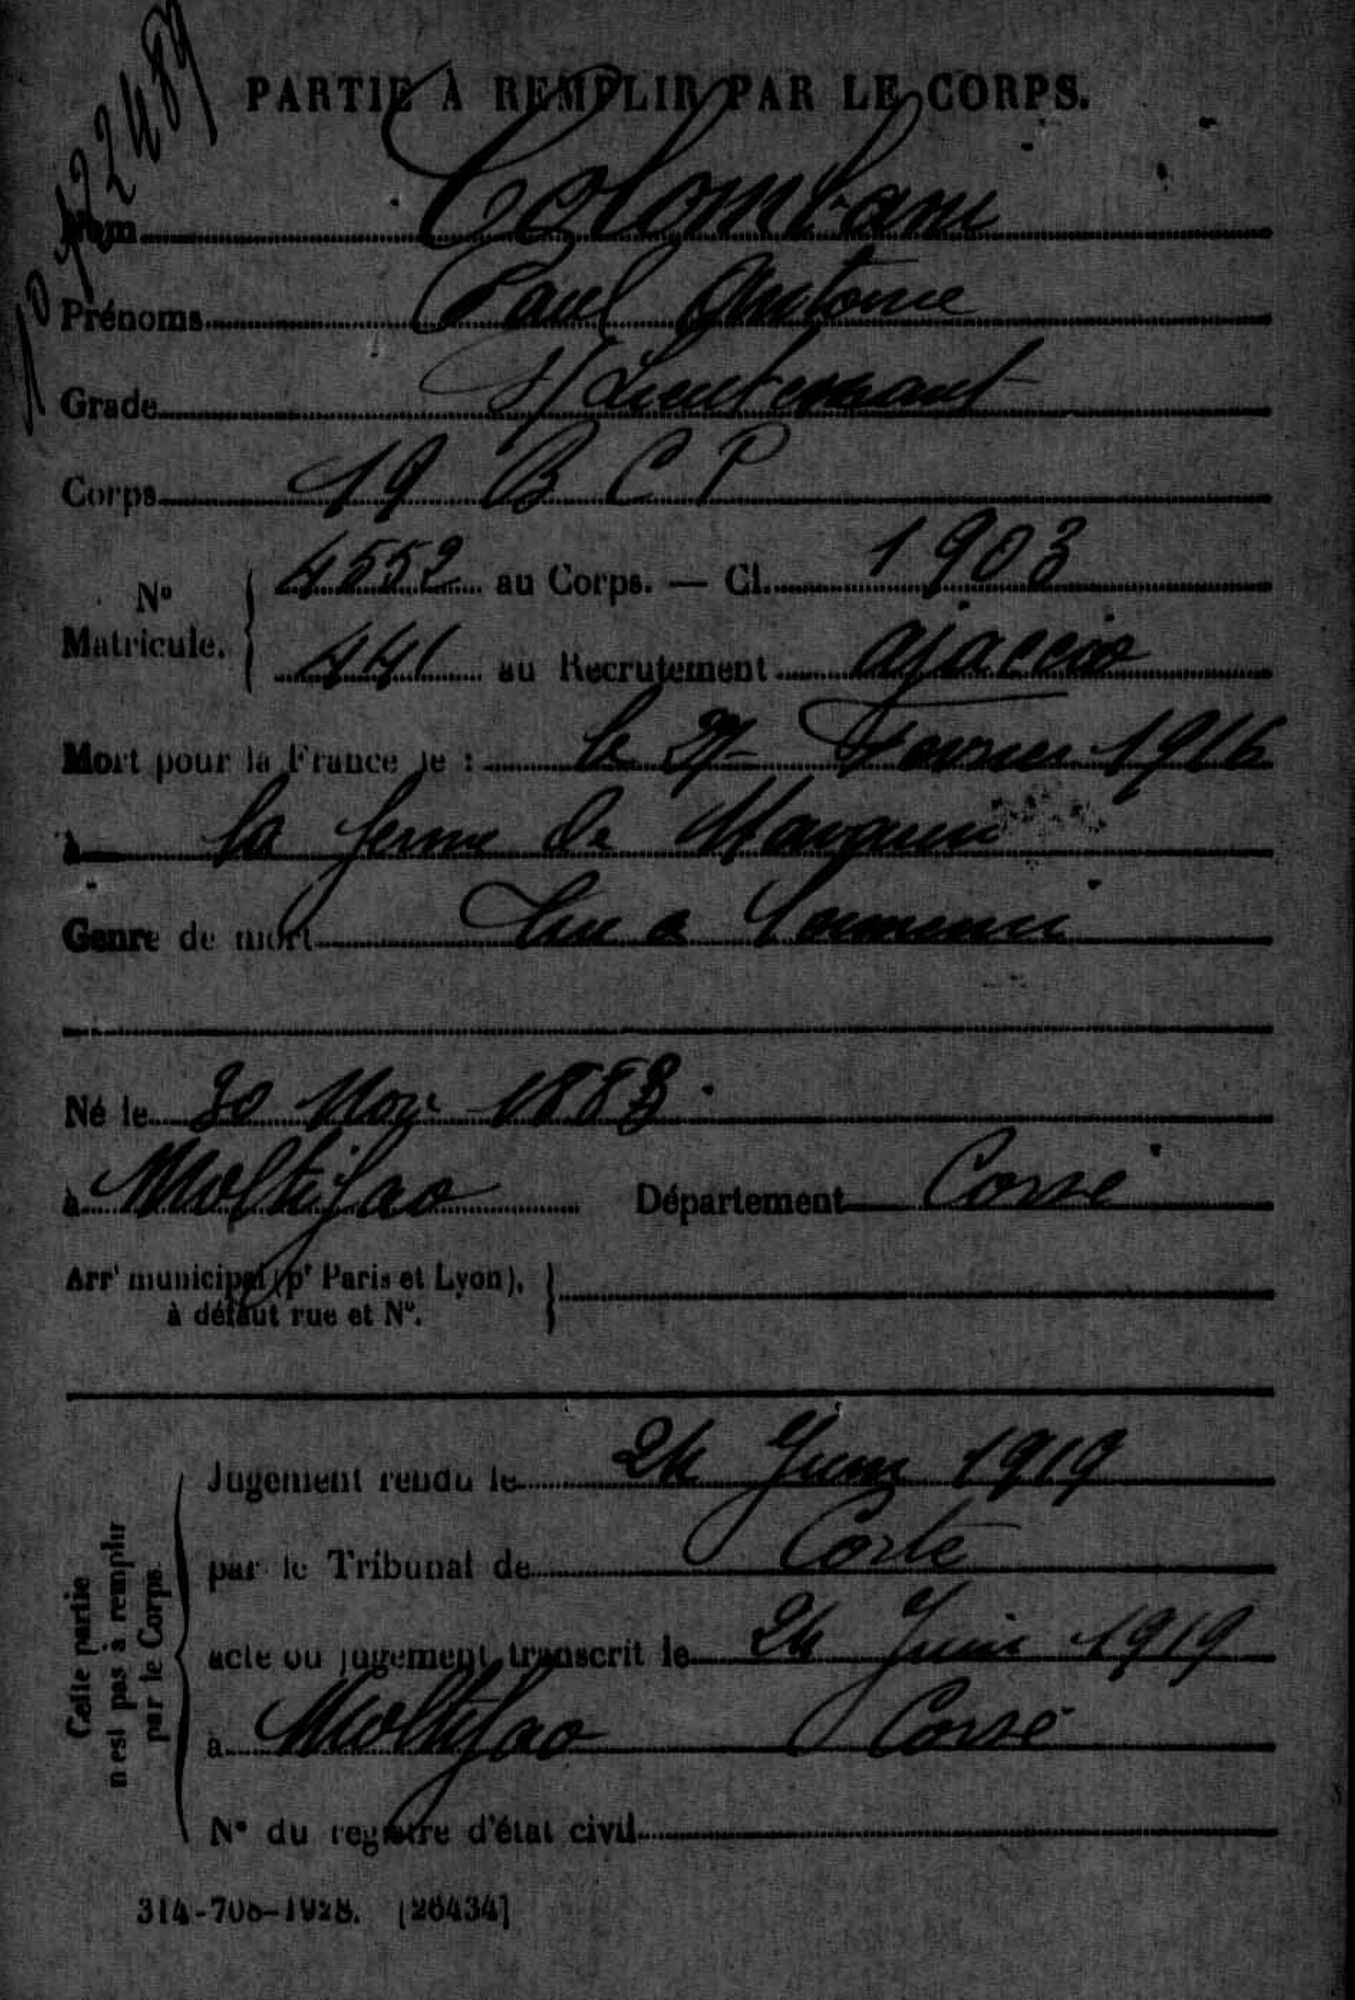 PARTIE À REMPLIR PAR LE CORPS.
Nom Colombani
Prénoms Paul Antoine
Grade S/Lieutenant
Corps 19 B C P
N° Matricule. { 4552 au Corps. — Cl. 1903
441 au Recrutement Ajaccio
Mort pour la France le : le 27 Fevrier 1916
à la ferme de
Genre de mort Tué a l'ennemi
Né le 30 Nov. 1883
à Moltifao Département Corse
Arrt municipal (pr Paris et Lyon),
à défaut rue et N°.
Cette partie
n'est pas à remplir
par le Corps.
Jugement rendu le 24 Juin 1919
par le Tribunal de Corte
acte ou jugement transcrit le 24 Juin 1919
à Moltifao Corse
N° du registre d'état civil
314-708-1928. [26434]